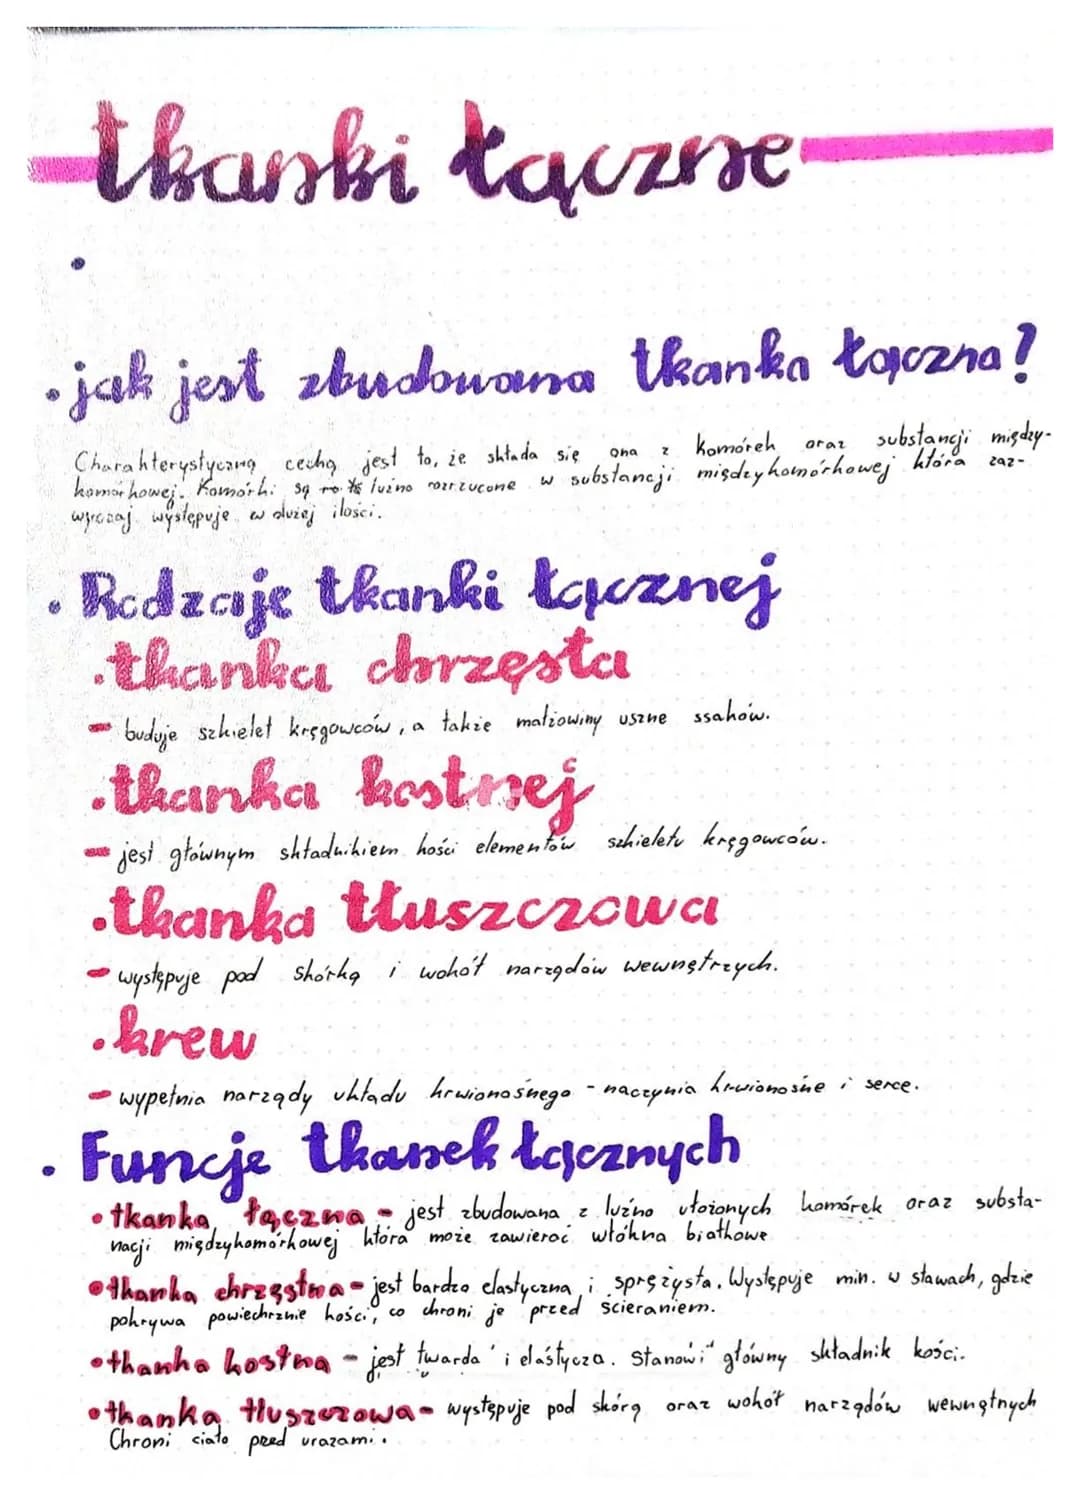 tkanki łączne
• jak jest zbudowana tkanka łączna?
Charakterystyczną cechą jest to, że składa się ona z komórek oraz substancji między-
komórkowej. Komórki są luźno rozrzucone w substancji międzykomórkowej która zaz-
wyczaj występuje w dużej ilości.
• Rodzaje tkanki łącznej
• tkanka chrzęsta
- buduje szkielet kręgowców, a także małżowiny uszne ssaków.
• tkanka kostnej
- jest głównym składnikiem kości elementów szkieletu kręgowców.
• tkanka tłuszczowa
- występuje pod skórką i wokół narządów wewnętrzych.
• krew
- wypełnia narządy układu krwionośnego - naczynia krwionośne i serce.
• Funcje tkanek łącznych
• tkanka łączna - jest zbudowana z luźno ułożonych komórek oraz substa-
nacji międzykomórkowej która może zawierać włókna białkowe
• tkanka chrzęstna - jest bardzo elastyczna i sprężysta. Występuje min. w stawach, gdzie
pokrywa powiechrznie kości, co chroni je przed ścieraniem.
• tkanka kostna - jest twarda i elastycza. Stanowi główny składnik kości.
• tkanka tłuszczowa - występuje pod skórą oraz wokół narządów wewnętnych
Chroni ciało pzed urazami.